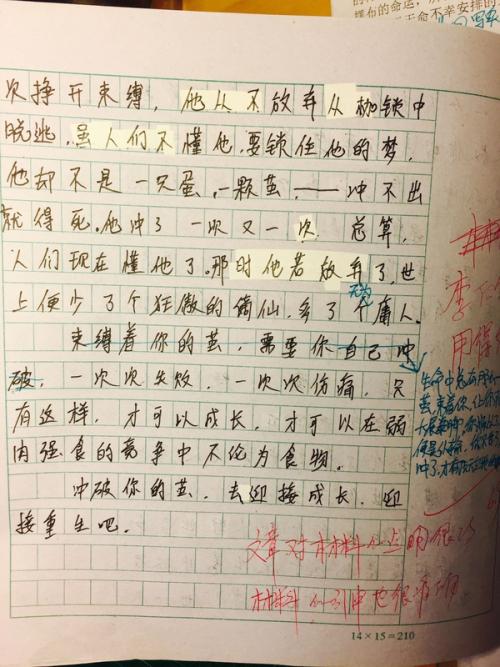 摆布的命运，
无命不幸安排的
次挣开束缚，他从不放弃从枷锁中
脱逃。虽人们不懂他，要锁住他的梦，
他却不是一只蛋，一颗茧，——冲不出
就得死。他冲了一次又一次，总算，
人们现在懂他了。那时他若放弃了，世
上便少了个狂傲的谪仙，多了个庸人。
无为
束缚着你的茧，需要你自己冲
破，一次次失败，一次次伤痛，只
有这样，才可以成长，才可以在弱
肉强食的竞争中不沦为食物。
冲破你的茧，去迎接成长，迎
接重生吧。
李
用得
生命中总有
茧束着你，让你
冲了才有
文章对材料的点明很巧
材料的引申也很
14×15=210